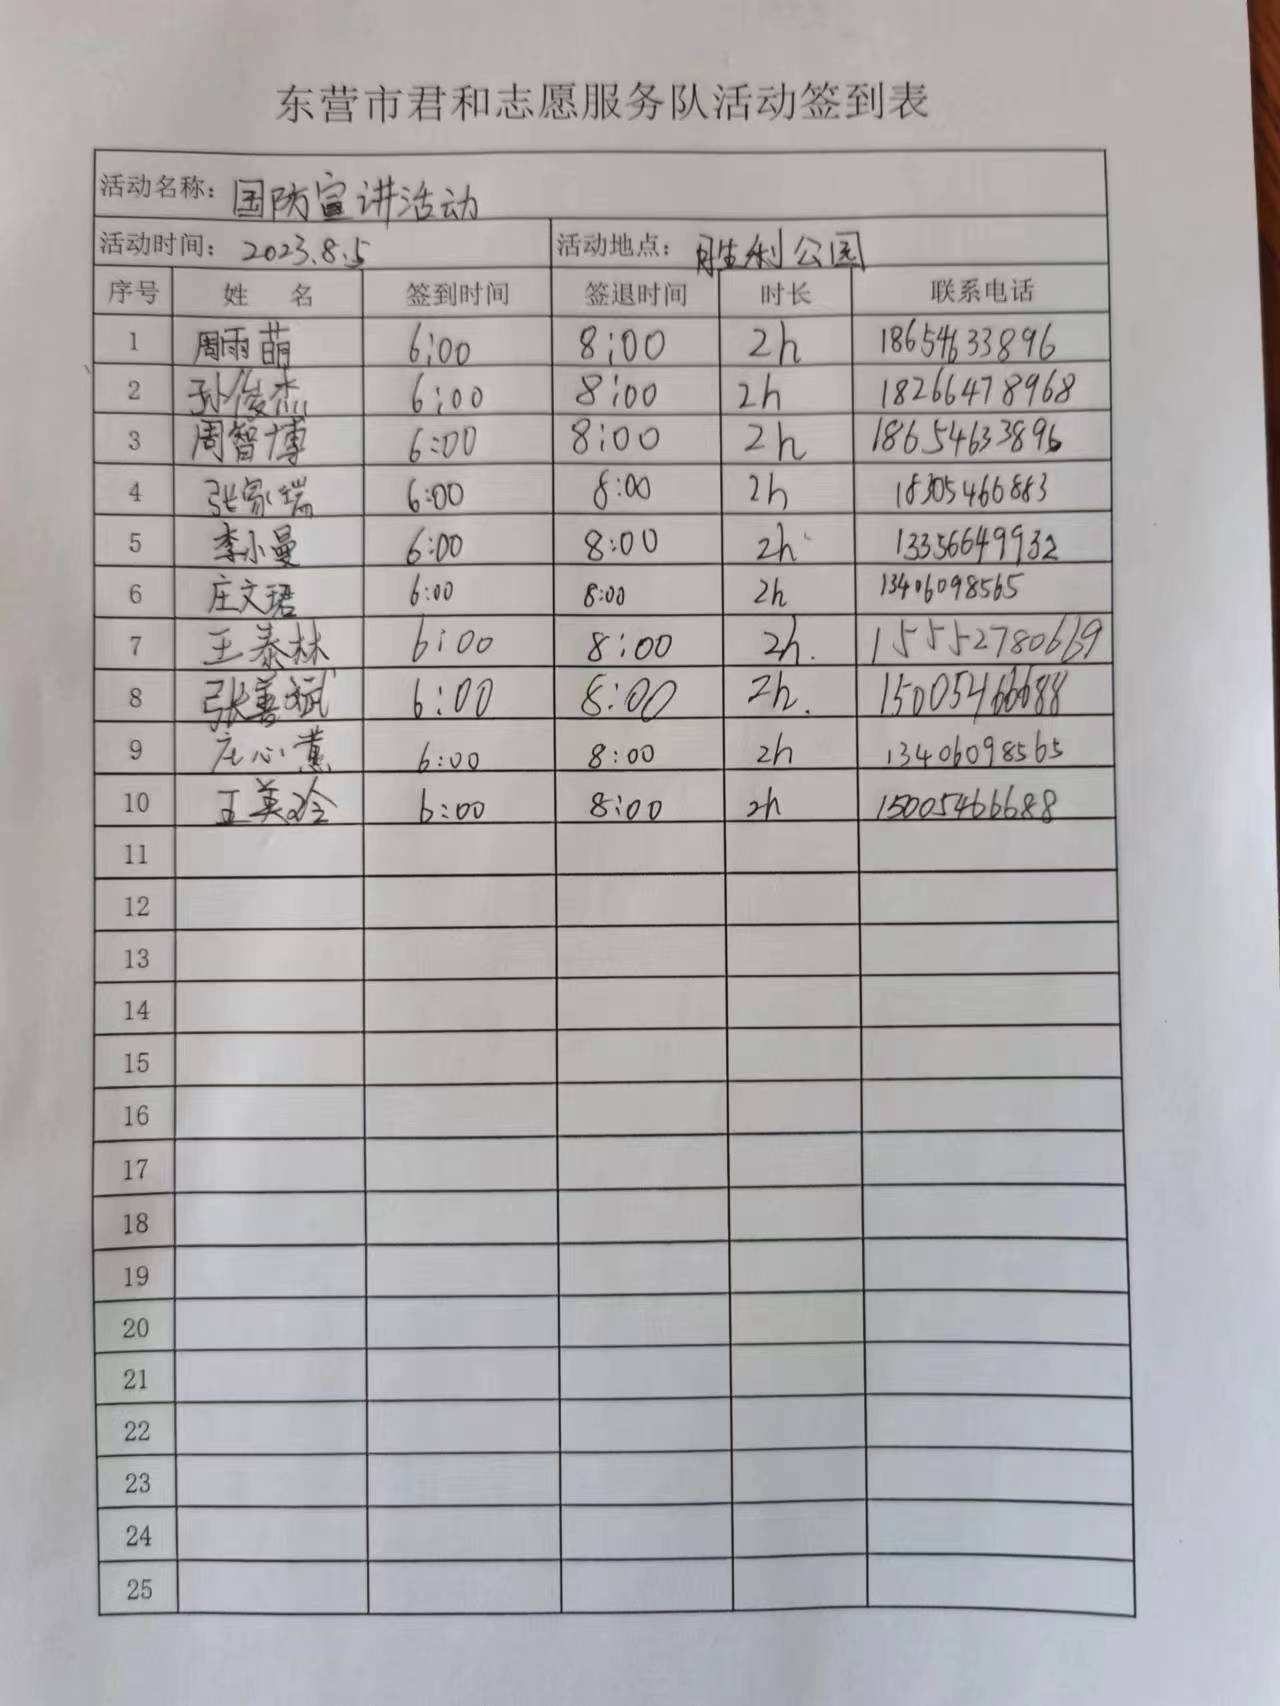 东营市君和志愿服务队活动签到表
活动名称: 国防宣讲活动
活动时间: 2023.8.5 活动地点: 胜利公园
序号 姓 名 签到时间 签退时间 时长 联系电话
1 周雨萌 6:00 8:00 2h 18654633896
2 孙俊杰 6:00 8:00 2h 18266478968
3 周智博 6:00 8:00 2h 18654633896
4 张家瑞 6:00 8:00 2h 18305466883
5 李小曼 6:00 8:00 2h 13356649932
6 庄文珺 6:00 8:00 2h 13406098565
7 王泰林 6:00 8:00 2h. 15552780669
8 张善斌 6:00 8:00 2h. 15005466688
9 庄心蕙 6:00 8:00 2h 13406098565
10 王美玲 6:00 8:00 2h 15005466688
11
12
13
14
15
16
17
18
19
20
21
22
23
24
25